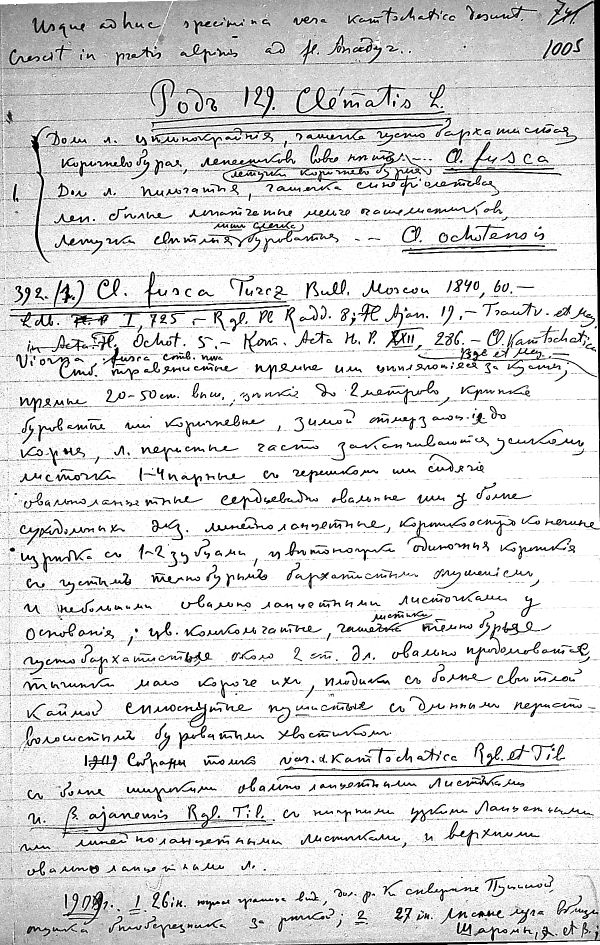 Usque adhuc specimina vera kamtschatica desunt.
Crescit in pratis alpinis ad fl. Anadyr.. 1005
Родъ 129. Clématis L.
Доли л. цѣльнокрайнія, чашечка густо бархатистая
коричневобурая, лепестковъ вовсе нѣтъ. --- Cl. fusca
летучки коричневобурыя
1. Дол л. пильчатыя, чашечка синефіолетовая
леп. бѣлые лопатчатые менѣе чашелистиковъ,
летучки свѣтлыя буроватыя -- Cl. ochotensis
392. (1.) Cl. fusca Turcz Bull. Moscou 1840, 60.—
Ldb. I, 725.- Rgl. Pl Radd. 8; Fl Ajan. 19.- Trautv. et Mey.
in Fl. Ochot. 5.- Kom. Acta H. P. XXII, 286.- Cl. Kamtschatica
Bge et Mey.
Viorna fusca
Стб. травянистые прямые или цѣпляющіеся за кусты,
прямые 20-50 ст. выш., цѣпкіе до 2 метровъ, крѣпкіе
буроватые или коричневые, зимой отмерзающіе до
корня, л. перистые часто заканчиваются усикомъ,
листочки 1-4 парные съ черешкомъ или сидячіе
овальноланцетные сердцевидно овальные или у болѣе
суходольныхъ экз. линейноланцетные, короткоостроконечные
изрѣдка съ 1-2 зубцами, цвѣтоножки одиночныя короткія
съ густымъ темнобурымъ бархатистымъ опушеніемъ,
и небольшими овально ланцетными листочками у
основанія, цв. колокольчатые, чашелистики темнобурые
густобархатистые около 2 ст. дл. овально продолговатые,
тычинки мало короче ихъ, плодики съ болѣе свѣтлой
каймой сплюснутые пушистые съ длинными перисто-
волосистымъ буроватымъ хвостикомъ
Собраны только var. α. kamtschatica Rgl. et Til
съ болѣе широкими овально ланцетными листками
и β. ajanensis Rgl. Til. съ нижними узкими ланцетными
или линейноланцетными листочками, и верхними
овальноланцетными л.
1909 г. 1 26 іюн. дол. р. К сѣвернѣе Пущиной,
опушка бѣлоберезника за рѣчкой; 2 27 іюн. лѣсные луга вблизи
Шаромы, α et β;